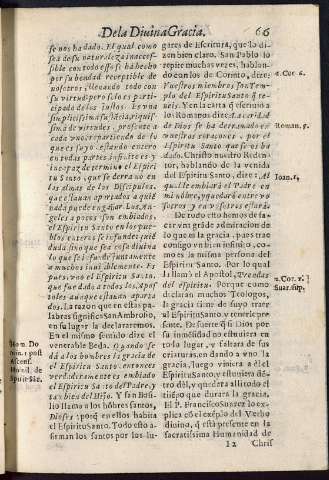 De la Diuina Gracia. 66
se nos ha dado. El qual como
sea de su naturaleza inacces-
sible con todo esso se ha hecho
por su bondad receptible de
nosotros, llenando todo con
su virtud: pero solo es parti-
cipado de los justos. Es vna
simplicissima substãcia, riquis-
sima de virtudes, presente a
cada vno, comunicando lo
que es suyo, estando entero
en todas partes infinito, è in-
capaz de termino el Espiri-
tu Santo, que se derramò en
las almas de los Discipulos,
que estauan apartados a quiẽ
nada puede engañar. Los An-
geles a pocos son embiados,
el Espiritu Santo en los pue-
blos enteros se infunde: quiẽ
duda sino que sea cosa diuina
lo que se infunde juntamente
a muchos inuisiblemente. Es
pues vno el Espiritu Santo,
que fue dado a todos los Apos-
toles aunque estauan aparta-
dos. La razon que en estas pa-
labras significa San Ambrosio,
en su lugar la declararemos.
En el mismo sentido dize el
venerable Beda. Quando se dà
a los hombres la gracia de
el Espiritu Santo, entonces
verdaderamente es embiado
el Espiritu Santo del Padre, y
tambien del Hijo. Y san Basi-
lio llama a los hõbres santos,
Dioses; porq̃ en ellos habita
el Espiritu Santo. Todo esto a-
firman los santos por los lu-
Hom. Do
min. 1. post
Ascens.
gares de Escritura, que lo di-
zen bien claro. San Pablo lo
repite muchas vezes, hablan-
do con los de Corinto, dize:
Vuestros miembros son Tem-
plo del Espiritu Santo q̃ te-
neis. Y en la carta q̃ escriuiò a
los Romanos dize: La carid. d
de Dios se ha derramado en
nuestros coraçones, por el
Espiritu Santo que nos es
dado. Christo nuestro Reden-
tor, hablando de la venida
del Espiritu Santo, dize: Al
qual embiarà el Padre en
mi nõbre, y quedarà entre vo
sotros, y en vosotros estarà.
De todo esto hemos de sa-
car vna grande admiracion de
lo que es la gracia, pues trae
consigo vn bien infinito, co-
mo es la misma persona del
Espiritu Santo. Por lo qual
la llamò el Apostol, Prendas
del espiritu. Porque como
declaran muchos Teologos,
la gracia tiene de suyo traer
al Espiritu Santo, y tenerle pre-
sente. De suerte q̃ si Dios por
su inmensidad no estuuiera en
todo lugar, y faltara de sus
criaturas, en dando a vno la
gracia, luego viniera a èl el
Espiritu Santo, y estuuiera den-
tro dèl, y que dàra alli todo el
tiẽpo que durara la gracia.
El P. Francisco Suarez lo ex-
plica cõ el exẽplo del Verbo
diuino, q̃ està presente en la
sacratissima Humanidad de
1. Cor. 6.
Roman. 5.
Ioan. 1,
2. Cor. 1.
Suar. sup.
I 2 Chris